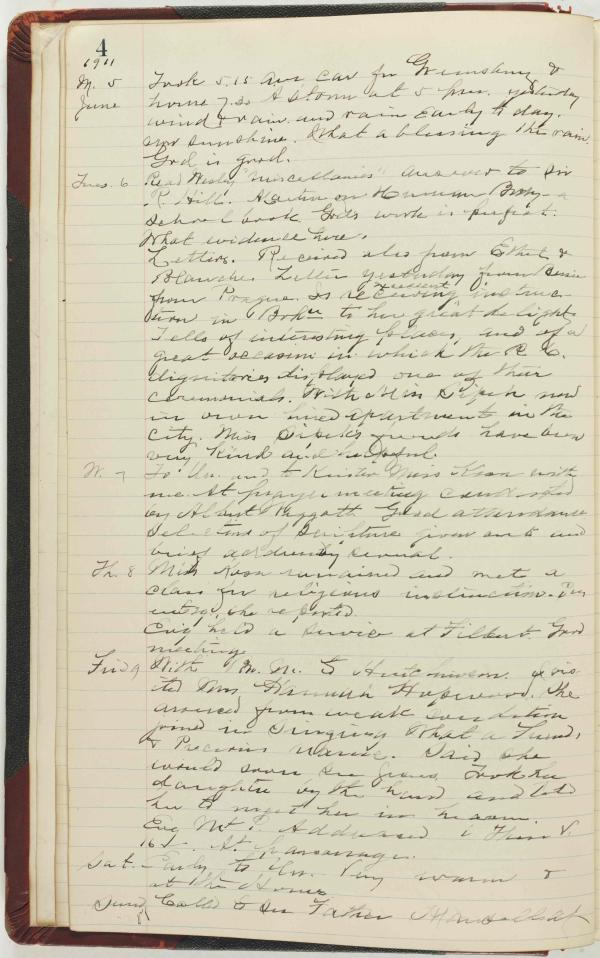 4
1911
M. 5 Took 5.15 am car for &
June home 7.30 A storm at 5 p.m. yesterday
wind & rain and rain early to day.
now sunshine. What a blessing the rain
God is good.
Tues. 6 Read Wesley "Miscellanies" answer to Sir
R. Hill. on Human Body - a
school book. God's work is perfect.
What evidence here.
Letters. Received also from Ethel &
Blanche. Letter yesterday from Bessie
from Prague. Is receiving instruc-
tion in to her great delight
Tells of interesting places, and of a
great occasion in which the R. C.
dignitaries displayed one of their
ceremonials. With Miss now
in own hired apartments in the
City. Miss friends have been
very kind and helpful.
W. 7 To Un. and to Miss with
me. At prayer meeting conducted
by Albert Good attendance
selections of Scripture given out and
brief address by several.
Th. 8 Miss remained and met a
class for religious instruction.
she reported.
Evg held a service at Filbert. Good
meeting.
Frid 9 With Mr. M. G Hutchinson vis
ited Mrs. Hannah Hopwood. She
aroused from weak condition
joined in singing What a Friend,
& Precious name. Said she
would soon see Jesus. Took her
daughter by the hand and told
her to meet her in heaven.
Evg Mt P. Addressed &
16 At parsonage.
Sat. Early to Un. Very warm &
at the Home
Sund Called to see Father